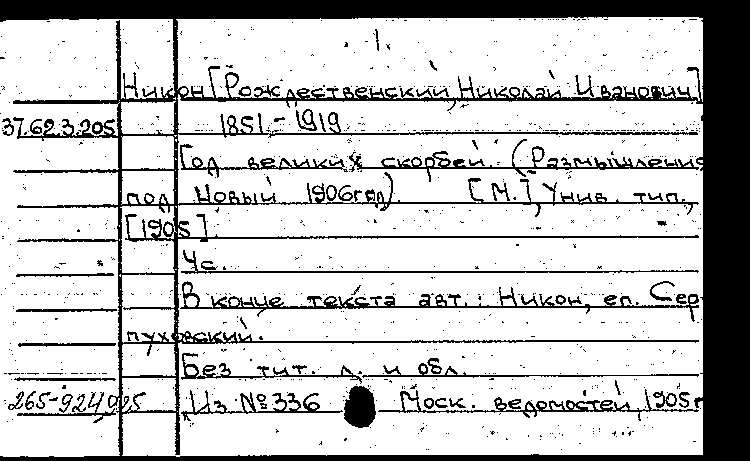 1.
Никон [Рождественский, Николай Иванович]
37.62.3.205 1851-1919
Год великих скорбей. (Размышления
под Новый 1906 год). [М.], Унив. тип.,
[1905].
4 с.
В конце текста авт.: Никон, еп. Сер-
пуховский.
Без тит. л. и обл.
265-924925 Из № 336 Моск. ведомостей, 1905 г